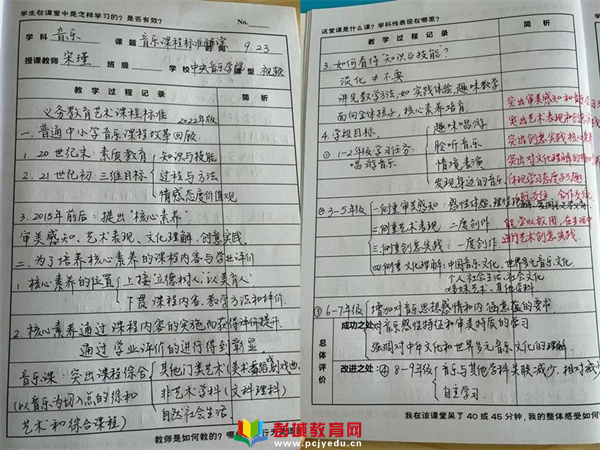 学生在课堂中是怎样学习的？是否有效？ No.
学科 音乐 课题 音乐课程标准解读 9.23
授课教师 宋瑾 班级 学校 中央音乐学院 课型 视频
教学过程记录 简析
义务教育艺术课程标准 2022年级
一.普通中小学音乐课程改革回顾
1. 20世纪末：素质教育 知识与技能
2. 21世纪初：三维目标 过程与方法
情感态度价值观
3. 2015年前后：提出“核心素养”
审美感知、艺术表现、文化理解、创意实践
二.为了培养核心素养的课程内容与学业评价
1. 核心素养的位置 上接立德树人“以美育人”
下贯课程内容、教学方法和评价.
2. 核心素养通过课程内容的实施而获得评价提升.
通过学业评价的进行得到彰显
音乐课：突出课程综合 其他门类艺术（美术舞蹈戏剧戏曲
(以音乐为切入点的综和 非艺术学科（文科理科）
艺术和综合课程） 自然社会生活
教师是如何教的？
这堂课是什么课？学科性表现在哪里？
教学过程记录 简析
3. 如何看待“知识与技能”？
淡化 ≠ 不要
讲究教学方法，如实践体验，趣味教学
面向全体孩子，核心素养培育
4. 学段目标
趣味唱游 突出审美感知和音乐
① 1-2年级学习任务 聆听音乐 突出艺术表现和创意
唱游音乐 情境表演 突出创意实践核心素养
发现身边的音乐 突出对文化理解的
体现学习态度与习惯
② 3-5年级 一.侧重审美感知：感性体验、理性
二.侧重艺术表现 二度创作 能学以致用，在生活中
三.侧重创意实践：一度创作 进行艺术创意实践.
四.侧重文化理解：中国音乐文化、世界多元音乐文化
个人社会生活、社会文化
姊妹艺术、其他学科
③ 6-7年级 增加对音乐思想感情和内涵意蕴的要求
成功之处： 对音乐感性特征和审美特质的学习
强调对中华文化和世界多元音乐文化的理解
总体评价
改进之处： ④ 8-9年级 音乐与其他学科关联减少，相对减少
自主学习.
我在该课堂呆了 40 或 45 分钟，我的整体感受如何
彭城教育网
www.pcjyedu.cn